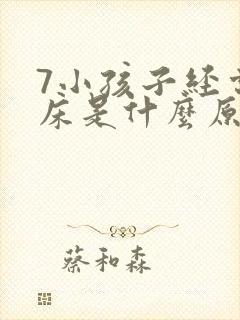 7小孩子经
床是什麼原
蔡和森